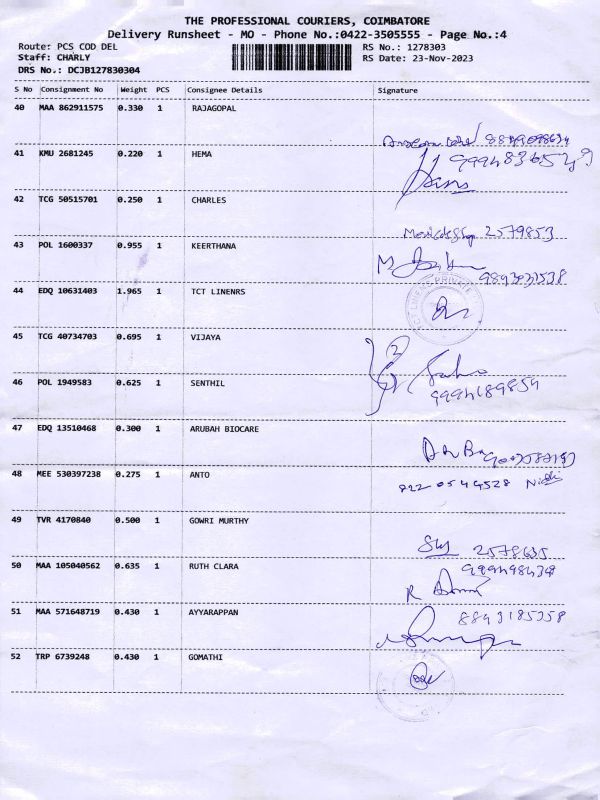 THE PROFESSIONAL COURIERS, COIMBATORE
Delivery Runsheet - MO - Phone No.:0422-3505555 - Page No.:4
Route: PCS COD DEL RS No.: 1278303
Staff: CHARLY RS Date: 23-Nov-2023
DRS No.: DCJB127830304
S No Consignment No Weight PCS Consignee Details Signature
40 MAA 862911575 0.330 1 RAJAGOPAL
41 KMU 2681245 0.220 1 HEMA
42 TCG 50515701 0.250 1 CHARLES
2579853
43 POL 1600337 0.955 1 KEERTHANA
44 EDQ 10631403 1.965 1 TCT LINENRS
45 TCG 40734703 0.695 1 VIJAYA
46 POL 1949583 0.625 1 SENTHIL
47 EDQ 13510468 0.300 1 ARUBAH BIOCARE
48 MEE 530397238 0.275 1 ANTO
49 TVR 4170840 0.500 1 GOWRI MURTHY
2578635
50 MAA 105040562 0.635 1 RUTH CLARA
51 MAA 571648719 0.430 1 AYYARAPPAN
52 TRP 6739248 0.430 1 GOMATHI